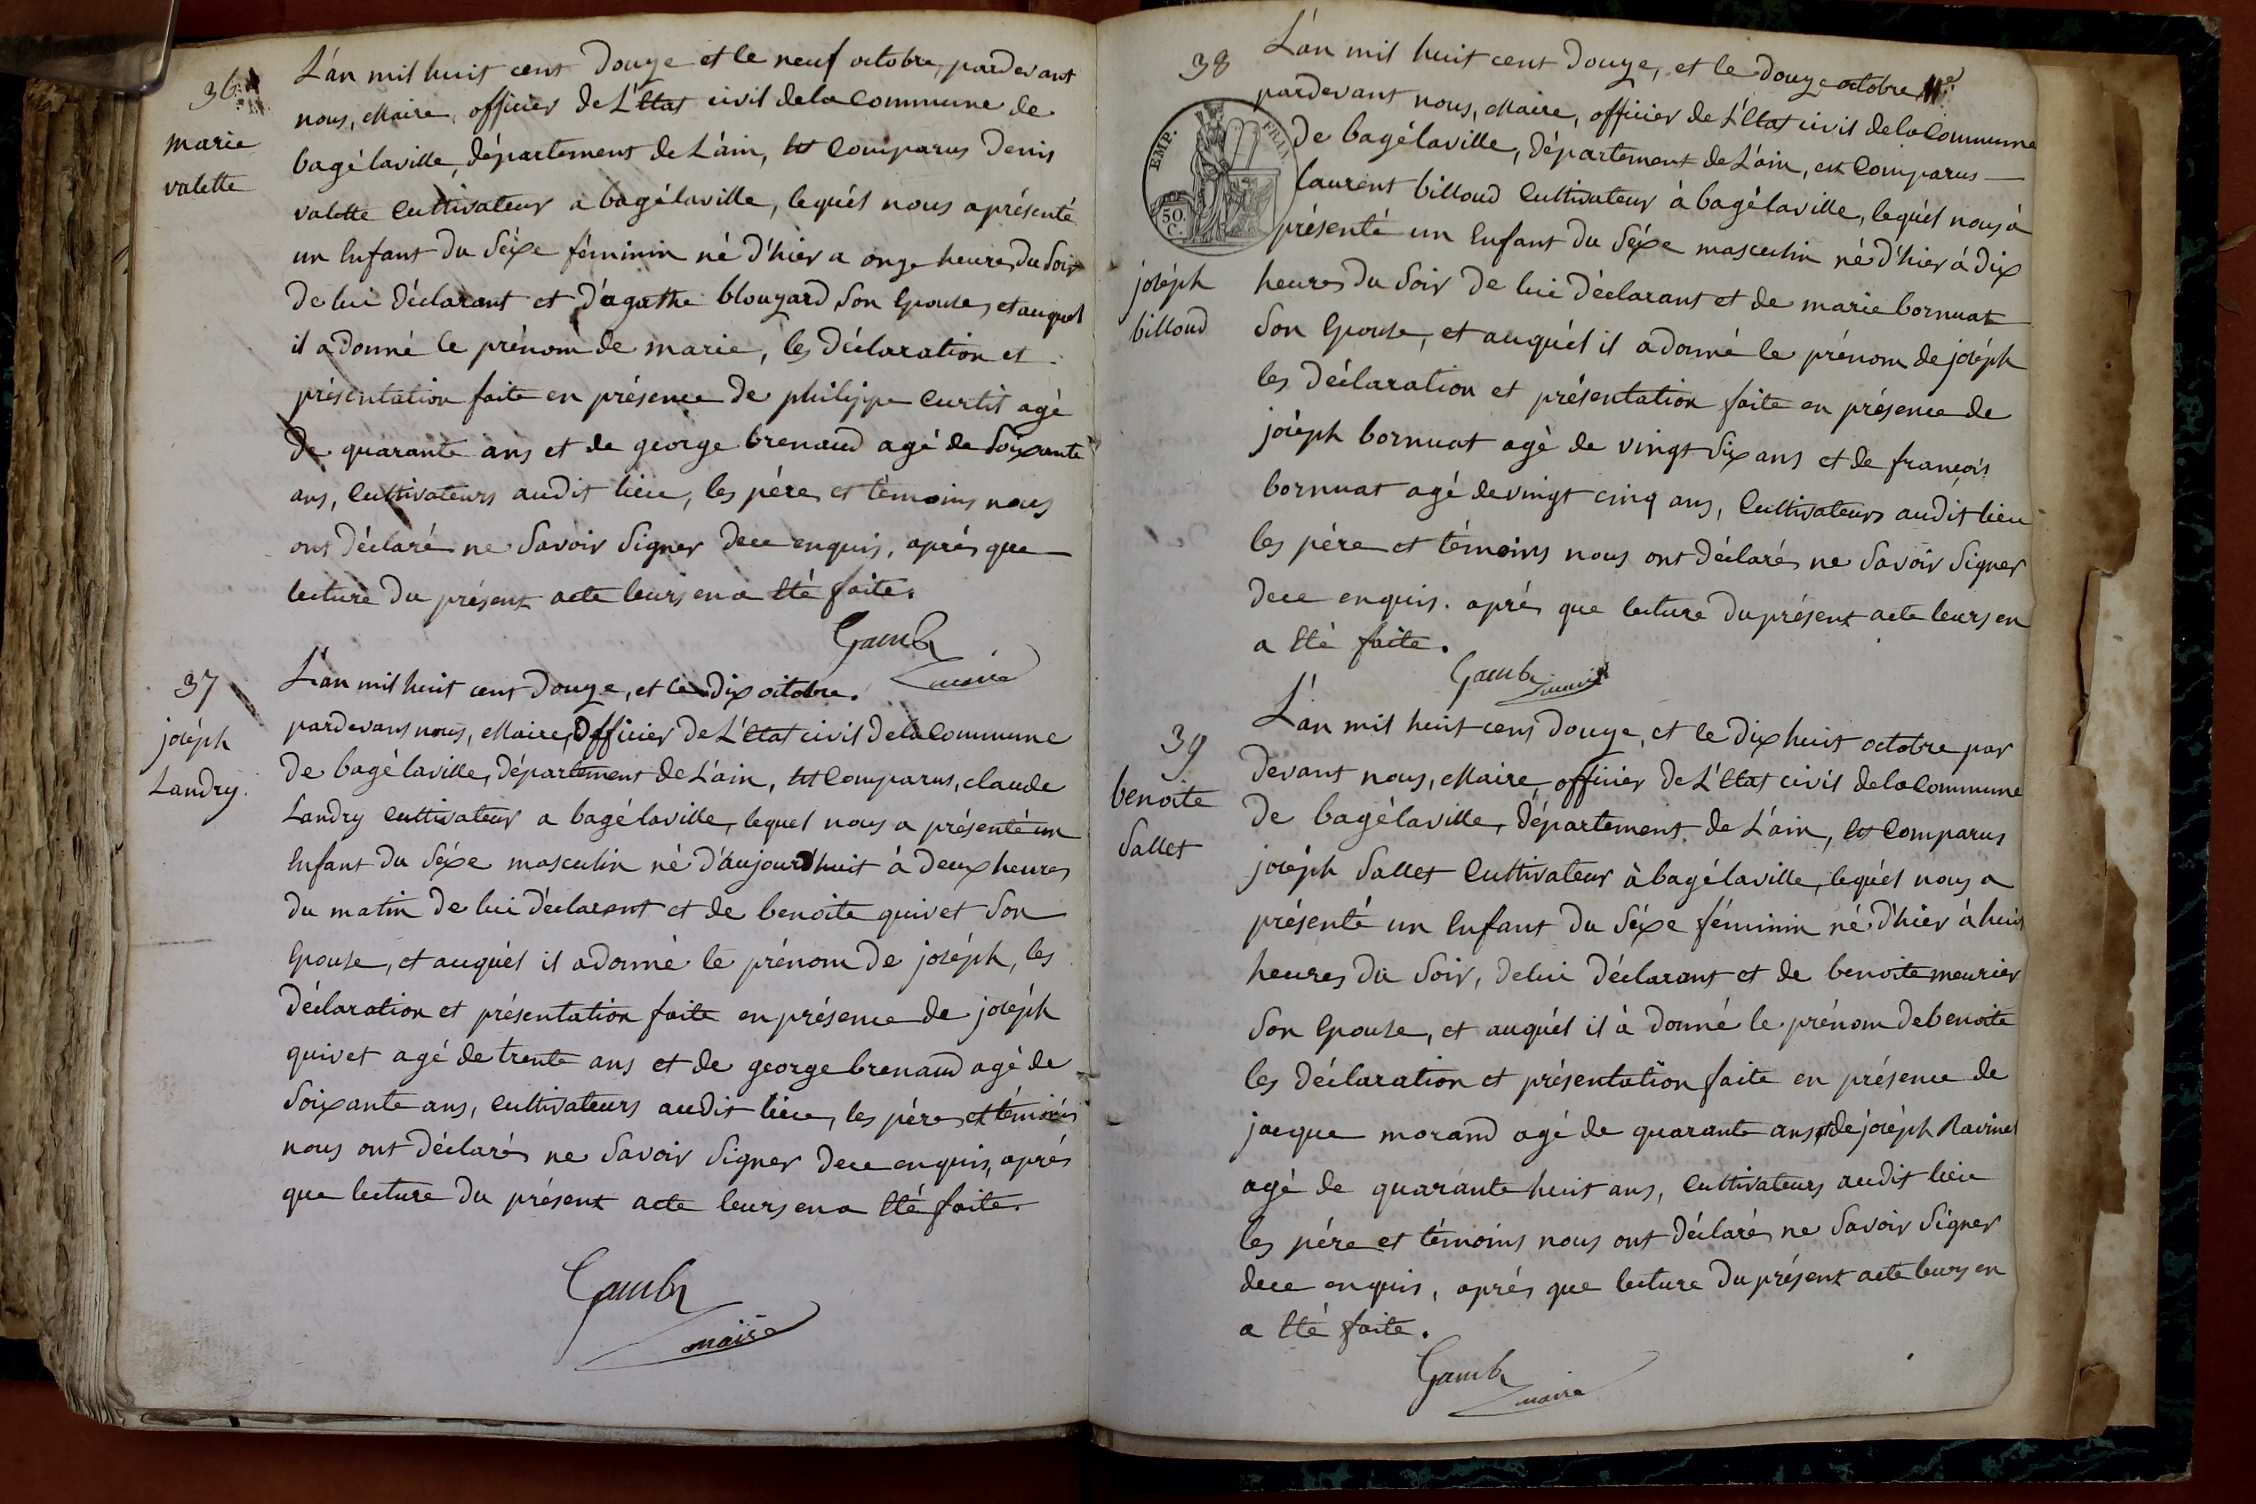 36
marie
valette
L'an mil huit cent Douze et le neuf octobre, pardevant
nous, Maire, officier de L'Etat civil de la Commune de
bagélaville, département de L'ain, est Comparus Denis
valette Cultivateur a bagélaville, lequél nous a présenté
un Enfant du Séxe féminin né d'hier a onze heures du Soir
de lui déclarant et d'agathe blouzard Son Epouse, et auquel
il a donné le prénom de marie, les déclaration et
présentation faite en présence de philippe Curtit agé
de quarante ans et de george brenaud agé de Soixante
ans, Cultivateurs audit lieu, les pére et témoins nous
ont déclarés ne Savoir Signer de ce enquis, aprés que
lecture du présent acte leurs en a Eté faite.
Gamb
maire
37
joséph
Landry.
L'an mil huit cent Douze, et le dix octobre.
pardevant nous, Maire, Officier de L'Etat civil de la Commune
de bagélaville, département de L'ain, est Comparus, claude
Landry Cultivateur a bagélaville, lequel nous a présenté un
Enfant du Séxe masculin né d'aujourd'huit à deux heures
du matin de lui déclarant et de benoite quivet Son
Epouse, et auquél il a donné le prénom de joséph, les
déclaration et présentation faite en présence de joséph
quivet agé de trente ans et de george brenaud agé de
Soixante ans, Cultivateurs audit lieu, les pére et témoins
nous ont déclarés ne Savoir Signer de ce enquis, aprés
que lecture du présent acte leurs en a Eté faite.
Gamb
maire
38
EMP. FRAN.
50.
C.
joséph
billoud
L'an mil huit cent Douze, et le douze octobre
pardevant nous, Maire, officier de L'Etat civil de la Commune
de bagélaville, département de L'ain, est Comparus
Laurent billoud Cultivateur à bagélaville, lequél nous à
présenté un Enfant du Séxe masculin né d'hier à dix
heures du Soir de lui déclarant et de marie bornuat
Son Epouse, et auquél il a donné le prénom de joséph
les déclaration et présentation faite en présence de
joséph bornuat agé de vingt Six ans et de françois
bornuat agé de vingt cinq ans, Cultivateurs audit lieu
les pére et témoins nous ont déclarés ne Savoir Signer
de ce enquis. aprés que lecture du présent acte leurs en
a Eté faite.
Gamb
maire
39
benoite
Sallet
L'an mil huit cent Douze, et le dix huit octobre par
devant nous, Maire, officier de L'Etat civil de la Commune
de bagélaville, département de L'ain, est Comparus
joséph Sallet Cultivateur à bagélaville, lequél nous a
présenté un Enfant du Séxe féminin né d'hier à huit
heures du Soir, de lui déclarant et de benoite meurier
Son Epouse, et auquél il à donné le prénom de benoite
les déclaration et présentation faite en présence de
jacque morand agé de quarante ans et de joséph Ravinet
agé de quarante huit ans, Cultivateurs audit lieu
les pére et témoins nous ont déclarés ne Savoir Signer
de ce enquis, aprés que lecture du présent acte leurs en
a Eté faite.
Gamb
maire